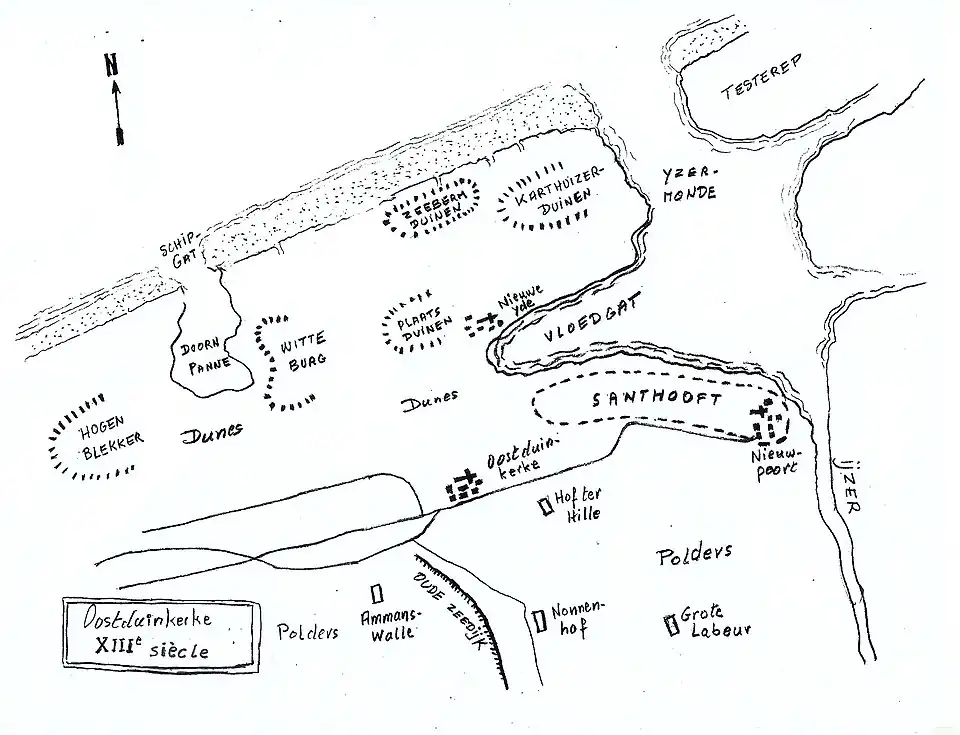 N
TESTEREP
YZER-
MONDE
KARTHUIZER-
DUINEN
ZEEBERM
DUINEN
SCHIP-
GAT
Nieuwe
Yde
PLAATS
DUINEN
VLOEDGAT
DOORN
PANNE
WITTE
BURG
SANTHOOFT
Dunes
HOGEN
BLEKKER
Dunes
Nieuw-
poort
Oostduin-
kerke
IJZER
Hof ter
Hille
Polders
OUDE ZEEDIJK
Ammans-
Walle
Nonnen-
hof
Grote
Labeur
Polders
Oostduinkerke
XIIIe siècle